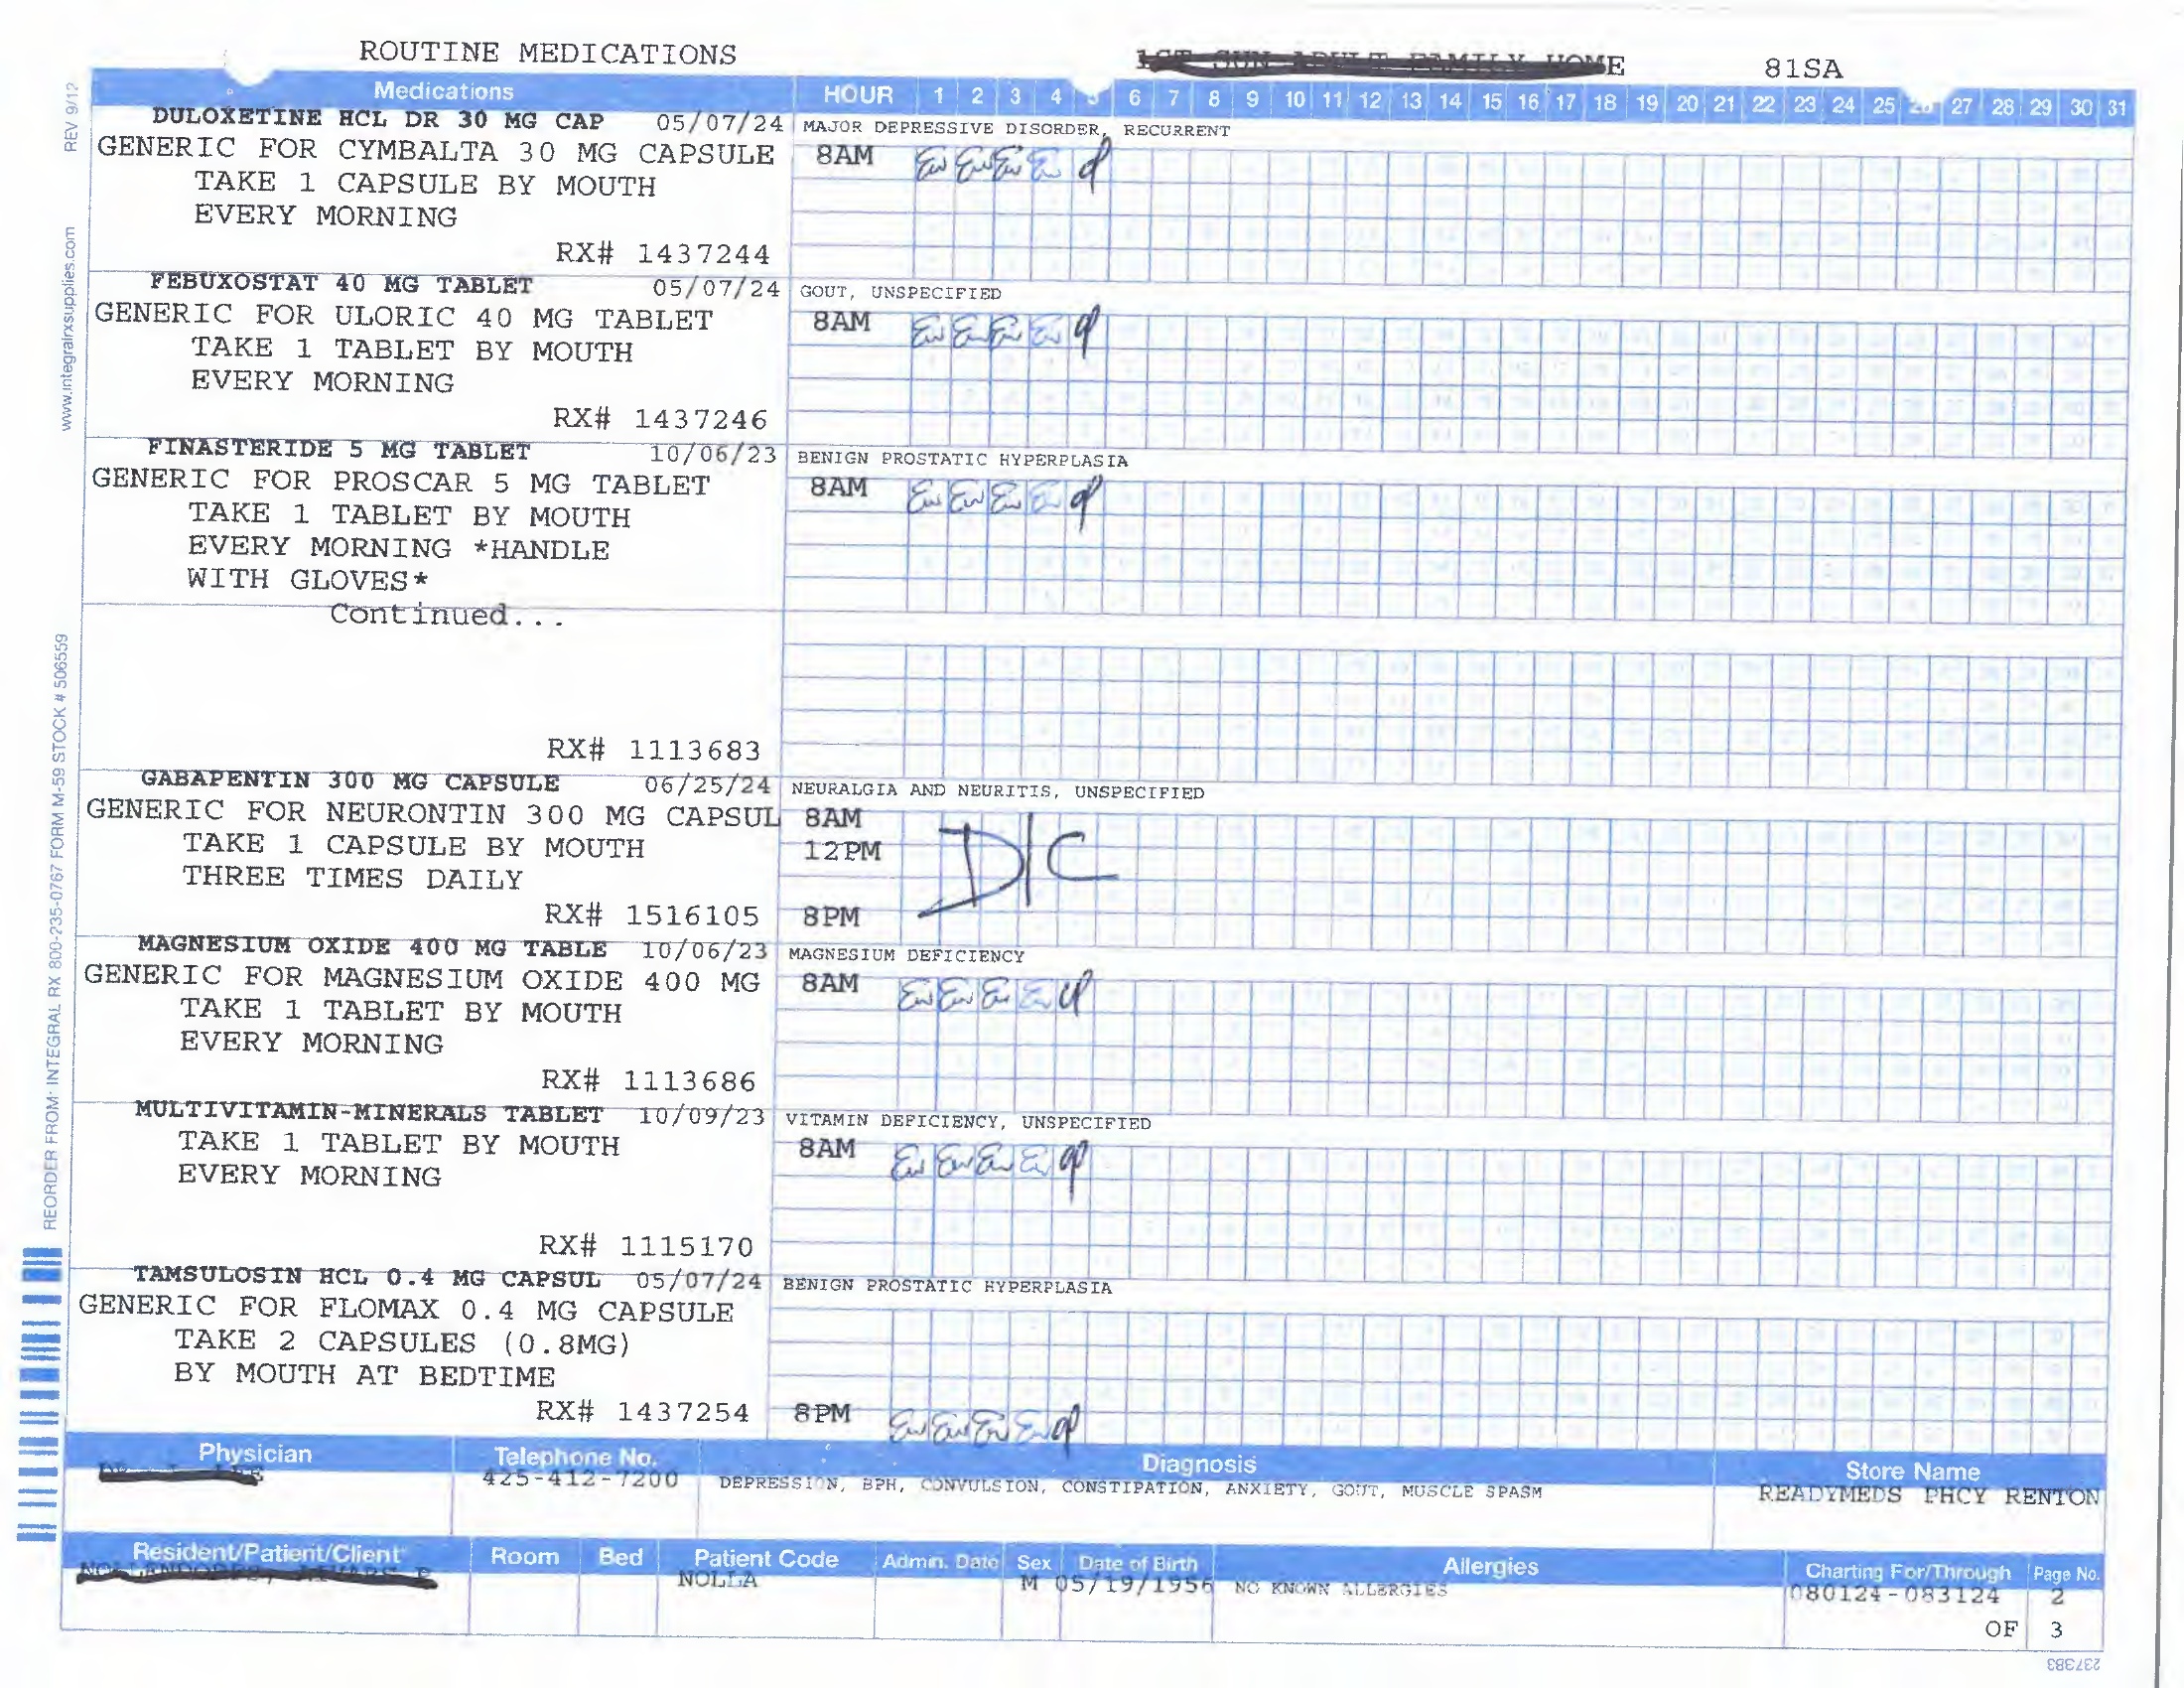 ROUTINE MEDICATIONS 81SA
Medications HOUR 1 2 3 4 5 6 7 8 9 10 11 12 13 14 15 16 17 18 19 20 21 22 23 24 25 26 27 28 29 30 31
DULOXETINE HCL DR 30 MG CAP 05/07/24 MAJOR DEPRESSIVE DISORDER, RECURRENT
GENERIC FOR CYMBALTA 30 MG CAPSULE 8AM
TAKE 1 CAPSULE BY MOUTH
EVERY MORNING
RX# 1437244
FEBUXOSTAT 40 MG TABLET 05/07/24 GOUT, UNSPECIFIED
GENERIC FOR ULORIC 40 MG TABLET 8AM
TAKE 1 TABLET BY MOUTH
EVERY MORNING
RX# 1437246
FINASTERIDE 5 MG TABLET 10/06/23 BENIGN PROSTATIC HYPERPLASIA
GENERIC FOR PROSCAR 5 MG TABLET 8AM
TAKE 1 TABLET BY MOUTH
EVERY MORNING *HANDLE
WITH GLOVES*
Continued...
RX# 1113683
GABAPENTIN 300 MG CAPSULE 06/25/24 NEURALGIA AND NEURITIS, UNSPECIFIED
GENERIC FOR NEURONTIN 300 MG CAPSUL 8AM
TAKE 1 CAPSULE BY MOUTH 12PM D/C
THREE TIMES DAILY
RX# 1516105 8PM
MAGNESIUM OXIDE 400 MG TABLE 10/06/23 MAGNESIUM DEFICIENCY
GENERIC FOR MAGNESIUM OXIDE 400 MG 8AM
TAKE 1 TABLET BY MOUTH
EVERY MORNING
RX# 1113686
MULTIVITAMIN-MINERALS TABLET 10/09/23 VITAMIN DEFICIENCY, UNSPECIFIED
TAKE 1 TABLET BY MOUTH 8AM
EVERY MORNING
RX# 1115170
TAMSULOSIN HCL 0.4 MG CAPSUL 05/07/24 BENIGN PROSTATIC HYPERPLASIA
GENERIC FOR FLOMAX 0.4 MG CAPSULE
TAKE 2 CAPSULES (0.8MG)
BY MOUTH AT BEDTIME
RX# 1437254 8PM
Physician Telephone No. Diagnosis Store Name
425-412-7200 DEPRESSION, BPH, CONVULSION, CONSTIPATION, ANXIETY, GOUT, MUSCLE SPASM READYMEDS PHCY RENTON
Resident/Patient/Client Room Bed Patient Code Admin. Date Sex Date of Birth Allergies Charting For/Through Page No.
NOLLA M 05/19/1956 NO KNOWN ALLERGIES 080124-083124 2
OF 3
237383
REORDER FROM: INTEGRAL RX 800-235-0767 FORM M-59 STOCK # 506559 www.integralrxsupplies.com REV 9/12